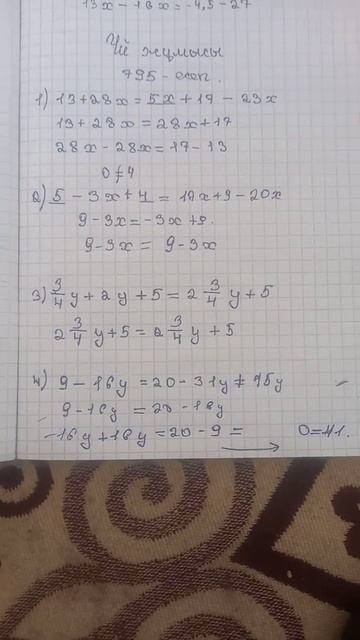 13x - 18x = -4,5 - 27
Үй жұмысы
795 - есеп.
1) 13 + 28x = 5x + 17 - 23x
13 + 28x = 28x + 17
28x - 28x = 17 - 13
0 ≠ 4
2) 5 - 3x + 4 = 17x + 9 - 20x
9 - 3x = -3x + 9.
9 - 3x = 9 - 3x
3) 3/4 y + 2y + 5 = 2 3/4 y + 5
2 3/4 y + 5 = 2 3/4 y + 5
4) 9 - 16y = 20 - 31y + 15y
9 - 16y = 20 - 16y
-16y + 16y = 20 - 9 = 0 = 11.